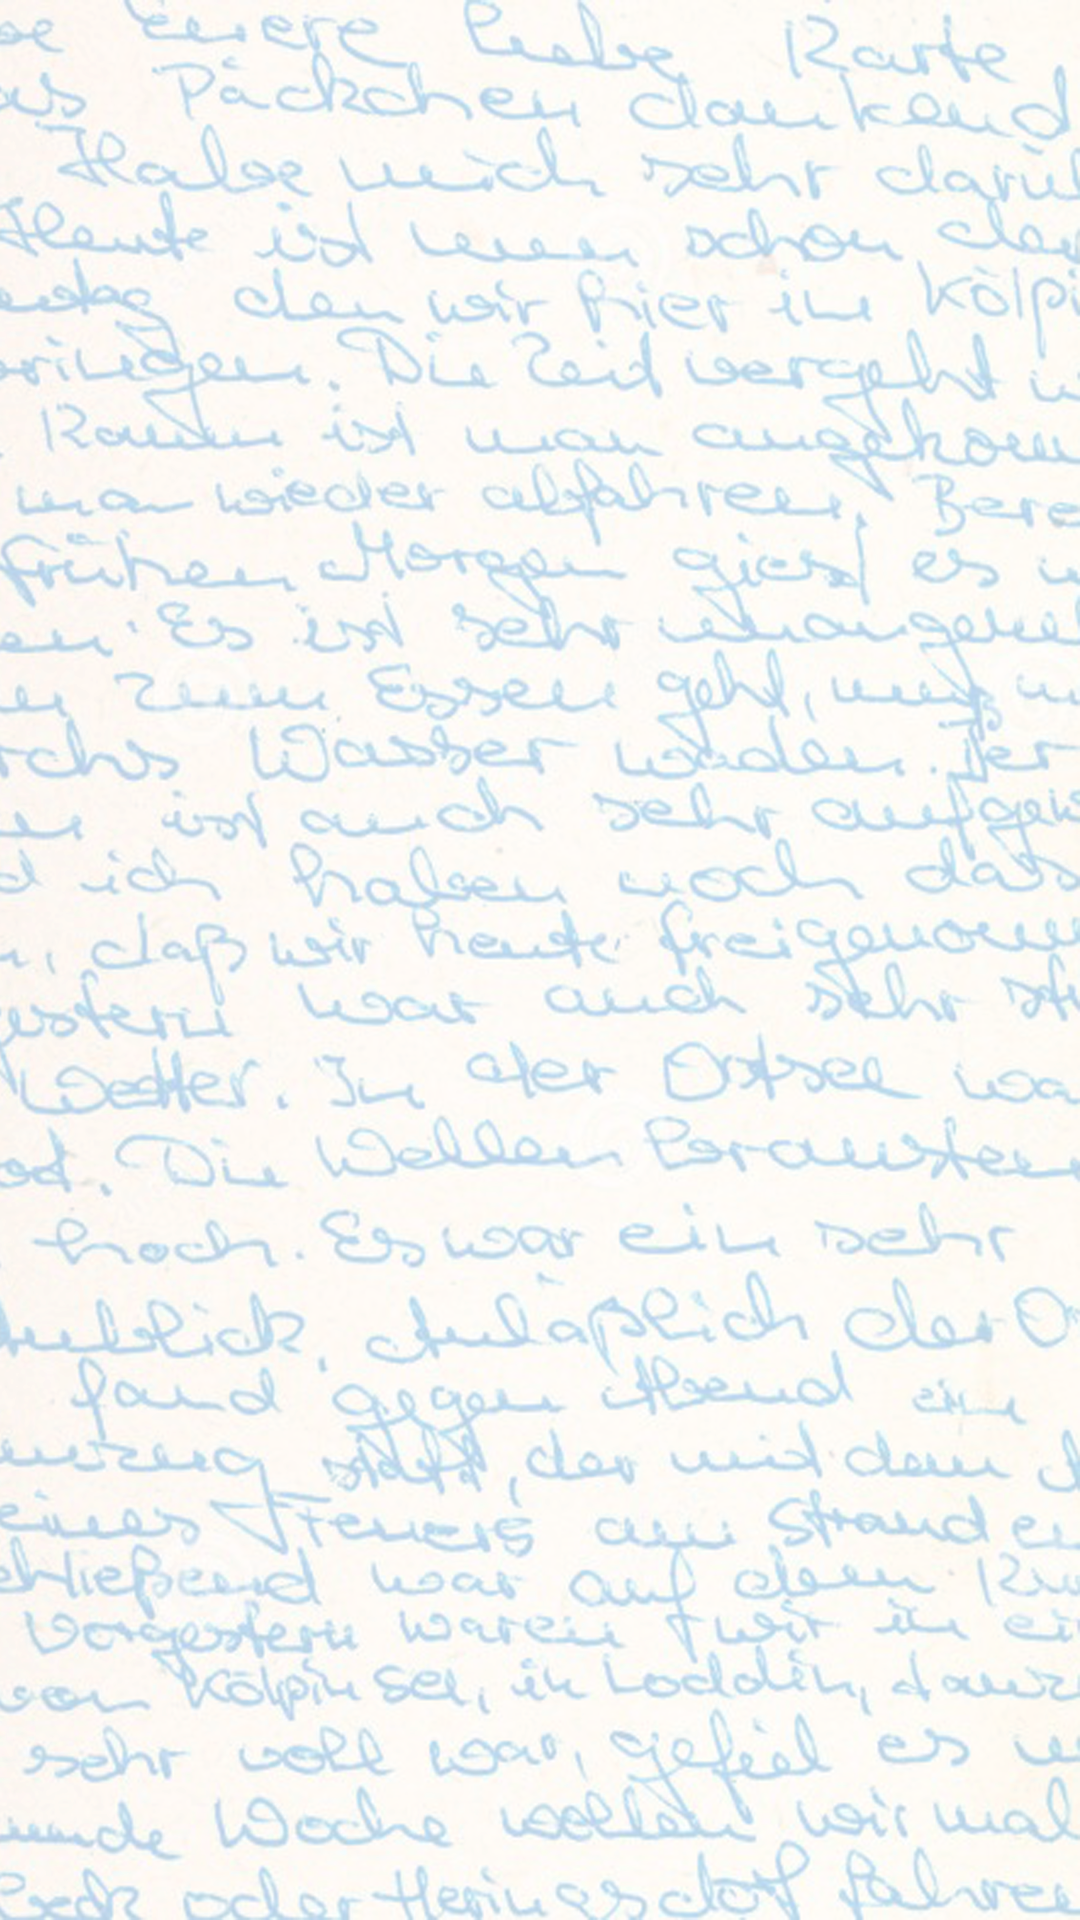 be Euere liebe Karte
as Päckchen dankend
Habe mich sehr darüb
Heute ist nun schon der
den wir hier in Kölpi
bringen. Die Zeit vergeht w
Kaum ist man angekom
man wieder abfahren. Bere
frühen Morgen giest es u
en. Es ist sehr unangeneh
zum Essen geht, muß m
rchs Wasser waden. Der
ist auch sehr aufgew
d ich haben noch das
n, daß wir heute freigenomm
gestern war auch sehr st
Wetter. In der Ostsee wa
ot. Die Wellen brausten
hoch. Es war ein sehr
Anblick. Anläßlich der O
fand gegen Abend ein
mzug statt, der mit dem A
eines Feuers am Strand en
chließend war auf dem Ku
Vorgestern waren wir in ein
von Kölpinsee, in Loddin, tanze
sehr voll war, gefiel es u
mende Woche wollen wir mal
Beck oder Heringsdorf fahren